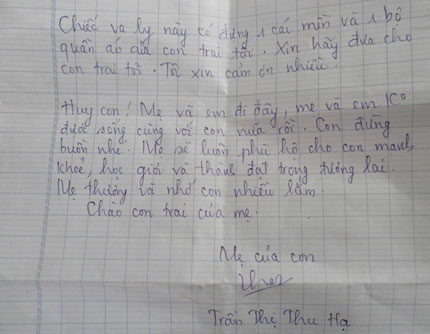 Chiếc va ly này có đựng 1 cái mền và 1 bộ
quần áo của con trai tôi. Xin hãy đưa cho
con trai tôi. Tôi xin cảm ơn nhiều.
Huy con! Mẹ và em đi đây, mẹ và em ko
được sống cùng với con nữa rồi. Con đừng
buồn nhé. Mẹ sẽ luôn phù hộ cho con mạnh
khoẻ, học giỏi và thành đạt trong tương lai.
Mẹ thương và nhớ con nhiều lắm.
Chào con trai của mẹ.
Mẹ của con
Trần Thị Thu Hạ